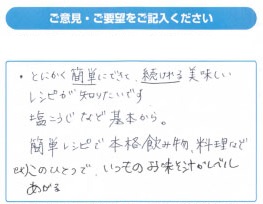 ご意見・ご要望をご記入ください
・とにかく簡単にできて、続けれる美味しい
レシピが知りたいです
塩こうじなど基本から。
簡単レシピで本格飲み物、料理など
ex)このひとつで、いつものお味そ汁がレベル
あがる